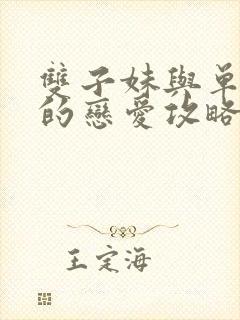 雙子妹與單
的戀愛攻略
王定海